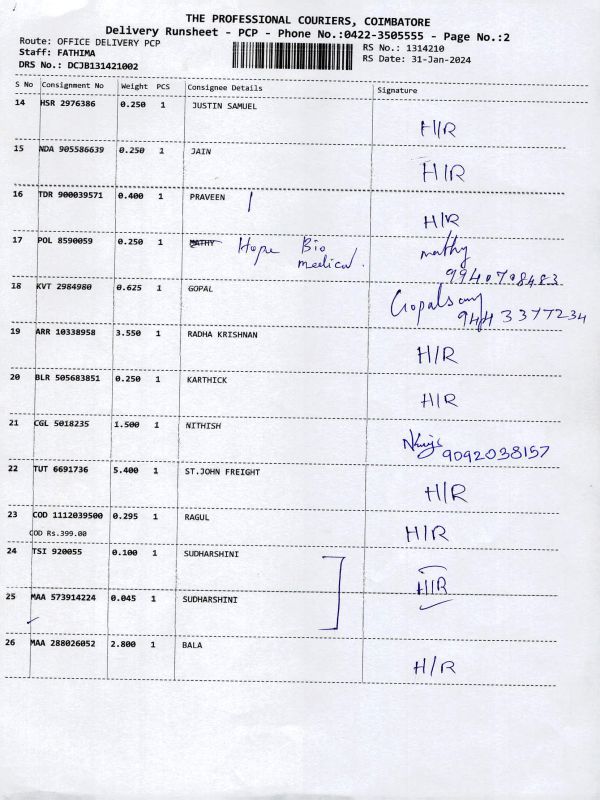 THE PROFESSIONAL COURIERS, COIMBATORE
Delivery Runsheet - PCP - Phone No.:0422-3505555 - Page No.:2
Route: OFFICE DELIVERY PCP RS No.: 1314210
Staff: FATHIMA RS Date: 31-Jan-2024
DRS No.: DCJB131421002
S No Consignment No Weight PCS Consignee Details Signature
14 HSR 2976386 0.250 1 JUSTIN SAMUEL H/R
15 NDA 905586639 0.250 1 JAIN H/R
16 TDR 900039571 0.400 1 PRAVEEN H/R
17 POL 8590059 0.250 1 MATHY Hope Bio medical. mathy
9940708483
18 KVT 2984980 0.625 1 GOPAL Gopalsamy
9443377234
19 ARR 10338958 3.550 1 RADHA KRISHNAN H/R
20 BLR 505683851 0.250 1 KARTHICK H/R
21 CGL 5018235 1.500 1 NITHISH 9092038157
22 TUT 6691736 5.400 1 ST.JOHN FREIGHT H/R
23 COD 1112039500 0.295 1 RAGUL H/R
COD Rs.399.00
24 TSI 920055 0.100 1 SUDHARSHINI H/R
25 MAA 573914224 0.045 1 SUDHARSHINI
26 MAA 288026052 2.800 1 BALA H/R